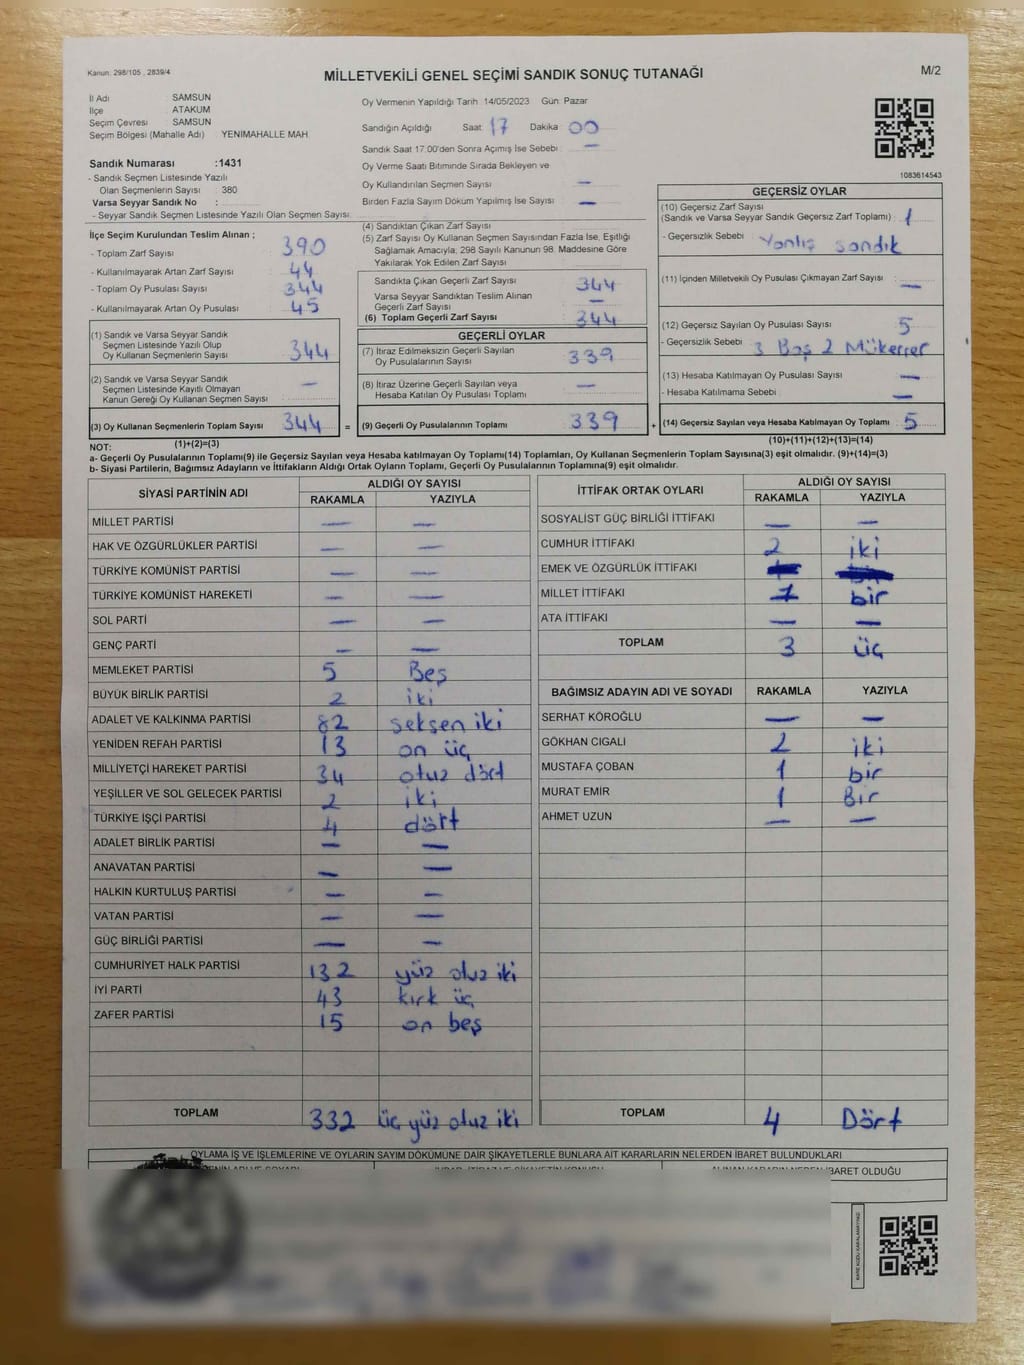 Kanun: 298/105 , 2839/4
MİLLETVEKİLİ GENEL SEÇİMİ SANDIK SONUÇ TUTANAĞI
M/2
İl Adı SAMSUN
İlçe ATAKUM
Seçim Çevresi SAMSUN
Seçim Bölgesi (Mahalle Adı) YENİMAHALLE MAH.
Sandık Numarası :1431
- Sandık Seçmen Listesinde Yazılı
Olan Seçmenlerin Sayısı : 380
Varsa Seyyar Sandık No :
- Seyyar Sandık Seçmen Listesinde Yazılı Olan Seçmen Sayısı
Oy Vermenin Yapıldığı Tarih 14/05/2023 Gün: Pazar
Sandığın Açıldığı Saat 17 Dakika 00
Sandık Saat 17.00'den Sonra Açımış İse Sebebi —
Oy Verme Saati Bitiminde Sırada Bekleyen ve
Oy Kullandırılan Seçmen Sayısı —
Birden Fazla Sayım Döküm Yapılmış İse Sayısı —
1083614543
İlçe Seçim Kurulundan Teslim Alınan ;
- Toplam Zarf Sayısı 390
- Kullanılmayarak Artan Zarf Sayısı 44
- Toplam Oy Pusulası Sayısı 344
- Kullanılmayarak Artan Oy Pusulası 45
(1) Sandık ve Varsa Seyyar Sandık
Seçmen Listesinde Yazılı Olup
Oy Kullanan Seçmenlerin Sayısı 344
(2) Sandık ve Varsa Seyyar Sandık
Seçmen Listesinde Kayıtlı Olmayan
Kanun Gereği Oy Kullanan Seçmen Sayısı —
(3) Oy Kullanan Seçmenlerin Toplam Sayısı 344 =
(1)+(2)=(3)
(4) Sandıktan Çıkan Zarf Sayısı
(5) Zarf Sayısı Oy Kullanan Seçmen Sayısından Fazla İse, Eşitliği
Sağlamak Amacıyla; 298 Sayılı Kanunun 98. Maddesine Göre
Yakılarak Yok Edilen Zarf Sayısı
Sandıkta Çıkan Geçerli Zarf Sayısı 344
Varsa Seyyar Sandıktan Teslim Alınan
Geçerli Zarf Sayısı —
(6) Toplam Geçerli Zarf Sayısı 344
GEÇERLİ OYLAR
(7) İtiraz Edilmeksizin Geçerli Sayılan
Oy Pusulalarının Sayısı 339
(8) İtiraz Üzerine Geçerli Sayılan veya
Hesaba Katılan Oy Pusulası Toplamı —
(9) Geçerli Oy Pusulalarının Toplamı 339 +
GEÇERSİZ OYLAR
(10) Geçersiz Zarf Sayısı
(Sandık ve Varsa Seyyar Sandık Geçersiz Zarf Toplamı) 1
- Geçersizlik Sebebi Yanlış sandık
(11) İçinden Milletvekili Oy Pusulası Çıkmayan Zarf Sayısı —
(12) Geçersiz Sayılan Oy Pusulası Sayısı 5
- Geçersizlik Sebebi 3 Boş 2 Mükerrer
(13) Hesaba Katılmayan Oy Pusulası Sayısı —
- Hesaba Katılmama Sebebi —
(14) Geçersiz Sayılan veya Hesaba Katılmayan Oy Toplamı 5
(10)+(11)+(12)+(13)=(14)
NOT:
a- Geçerli Oy Pusulalarının Toplamı(9) ile Geçersiz Sayılan veya Hesaba katılmayan Oy Toplamı(14) Toplamları, Oy Kullanan Seçmenlerin Toplam Sayısına(3) eşit olmalıdır. (9)+(14)=(3)
b- Siyasi Partilerin, Bağımsız Adayların ve İttifakların Aldığı Ortak Oyların Toplamı, Geçerli Oy Pusulalarının Toplamına(9) eşit olmalıdır.
SİYASİ PARTİNİN ADI ALDIĞI OY SAYISI
RAKAMLA YAZIYLA
MİLLET PARTİSİ — —
HAK VE ÖZGÜRLÜKLER PARTİSİ — —
TÜRKİYE KOMÜNİST PARTİSİ — —
TÜRKİYE KOMÜNİST HAREKETİ — —
SOL PARTİ — —
GENÇ PARTİ — —
MEMLEKET PARTİSİ 5 Beş
BÜYÜK BİRLİK PARTİSİ 2 iki
ADALET VE KALKINMA PARTİSİ 82 seksen iki
YENİDEN REFAH PARTİSİ 13 on üç
MİLLİYETÇİ HAREKET PARTİSİ 34 otuz dört
YEŞİLLER VE SOL GELECEK PARTİSİ 2 iki
TÜRKİYE İŞÇİ PARTİSİ 4 dört
ADALET BİRLİK PARTİSİ — —
ANAVATAN PARTİSİ — —
HALKIN KURTULUŞ PARTİSİ — —
VATAN PARTİSİ — —
GÜÇ BİRLİĞİ PARTİSİ — —
CUMHURİYET HALK PARTİSİ 132 yüz otuz iki
İYİ PARTİ 43 kırk üç
ZAFER PARTİSİ 15 on beş
TOPLAM 332 üç yüz otuz iki
İTTİFAK ORTAK OYLARI ALDIĞI OY SAYISI
RAKAMLA YAZIYLA
SOSYALİST GÜÇ BİRLİĞİ İTTİFAKI — —
CUMHUR İTTİFAKI 2 iki
EMEK VE ÖZGÜRLÜK İTTİFAKI
MİLLET İTTİFAKI 1 bir
ATA İTTİFAKI — —
TOPLAM 3 üç
BAĞIMSIZ ADAYIN ADI VE SOYADI RAKAMLA YAZIYLA
SERHAT KÖROĞLU — —
GÖKHAN CIGALİ 2 iki
MUSTAFA ÇOBAN 1 bir
MURAT EMİR 1 Bir
AHMET UZUN — —
TOPLAM 4 Dört
OYLAMA İŞ VE İŞLEMLERİNE VE OYLARIN SAYIM DÖKÜMÜNE DAİR ŞİKAYETLERLE BUNLARA AİT KARARLARIN NELERDEN İBARET BULUNDUKLARI
ALINAN KARARIN NEDEN İBARET OLDUĞU
KARE KODU KARALAMAYINIZ